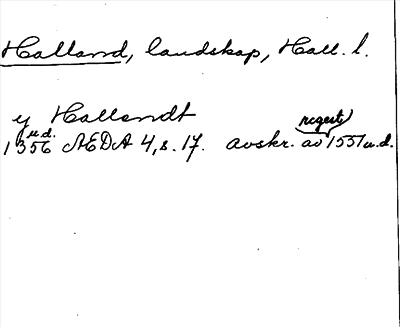 Halland, landskap, Hall. l.
y Hallandt
1356 u.d. ÆDA 4, s. 17. avskr. av (regest) 1551 u.d.